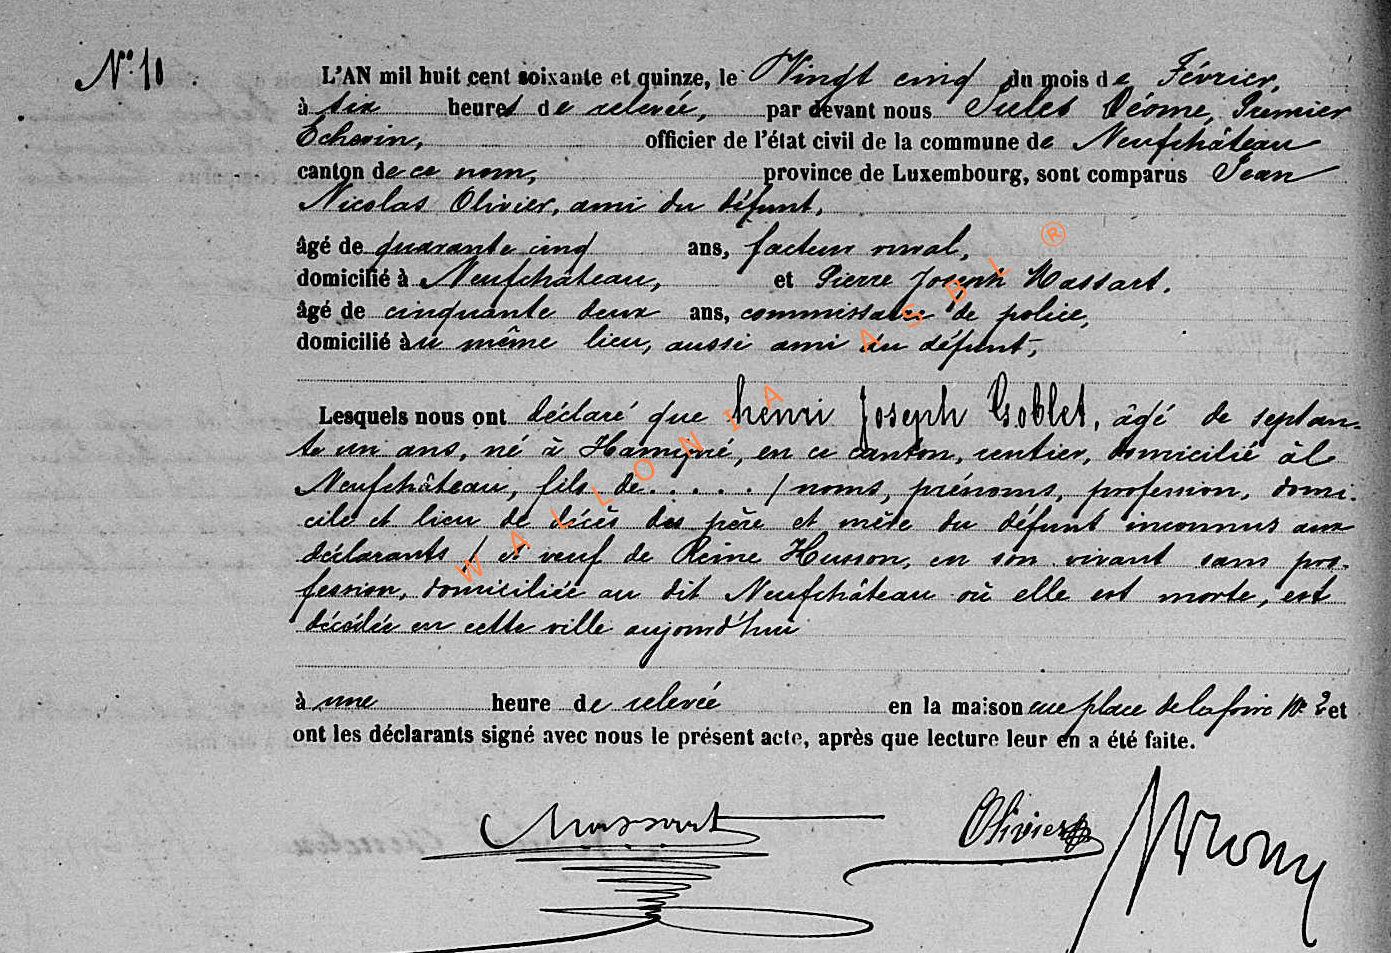 N° 10
L'AN mil huit cent soixante et quinze, le Vingt cinq du mois de Février,
à six heures de relevée, par devant nous Jules Déome, Premier
Echevin, officier de l'état civil de la commune de Neufchâteau
canton de ce nom, province de Luxembourg, sont comparus Jean
Nicolas Olivier, ami du défunt,
âgé de quarante cinq ans, facteur rural,
domicilié à Neufchâteau, et Pierre Joseph Massart,
âgé de cinquante deux ans, commissaire de police,
domicilié au même lieu, aussi ami du défunt,
Lesquels nous ont déclaré que henri Joseph Goblet, âgé de septan-
te un ans, né à Hamipré, en ce canton, rentier, domicilié à
Neufchâteau, fils de ..... / noms, prénoms, profession, domi-
cile et lieu de décès des père et mère du défunt inconnus aux
déclarants / et veuf de Reine Husson, en son vivant sans pro-
fession, domiciliée au dit Neufchâteau où elle est morte, est
décédée en cette ville aujourd'hui
à une heure de relevée en la maison rue place de la foire N° 2 et
ont les déclarants signé avec nous le présent acte, après que lecture leur en a été faite.
Massart Olivier
WALLONIA ASBL ®